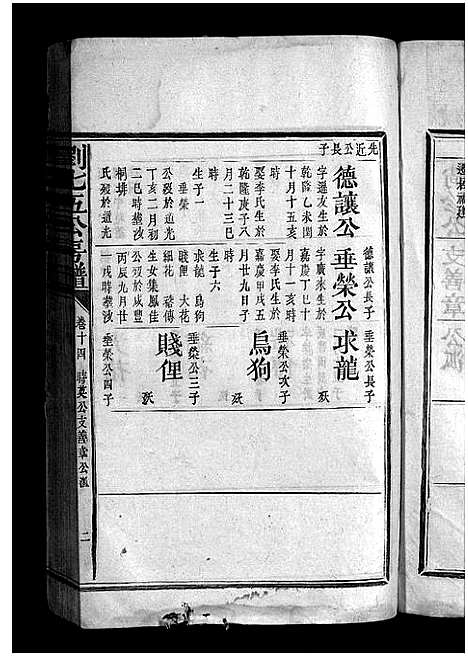 先近公長子
德讓公
字遜友生於
乾隆乙未閏
十月十五亥
時
娶李氏生於
乾隆庚子八
月二十三巳
時
生子一
垂榮
公歿於道光
丁亥二月初
二巳時塟汝
桐排
氏歿於道光
德讓公長子
垂榮公
字廣來生於
嘉慶丁巳十
月十一亥時
娶李氏生於
嘉慶甲戌五
月廿九日子
時
生子六
求龍 烏狗
賤俚 大花
細花 發傳
生女集鳳佳
公歿於咸豐
丙辰九月廿
一戌時塟汝
垂榮公長子
求龍
殀
垂榮公次子
烏狗
殀
垂榮公三子
賤俚
殀
垂榮公四子
劉七五公房譜
卷十四
公支善章公派
二
支善章公派